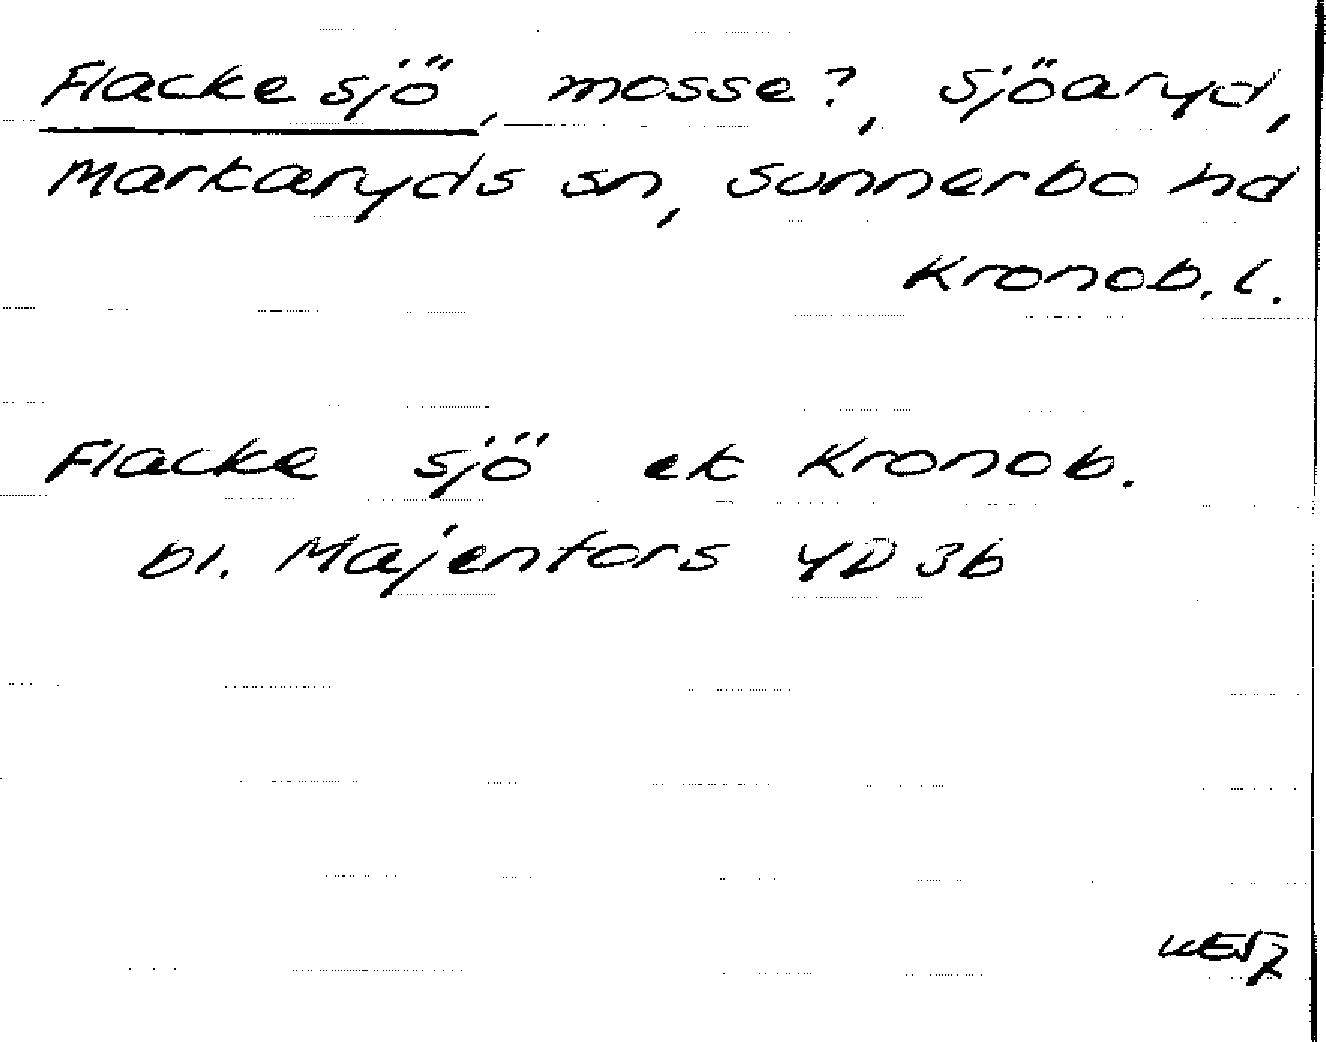 Flacke sjö, mosse?, Sjöaryd,
Markaryds sn, Sunnerbo hd
Kronob. l.
Flacke sjö ek Kronob.
bl. Majenfors 4D 3b